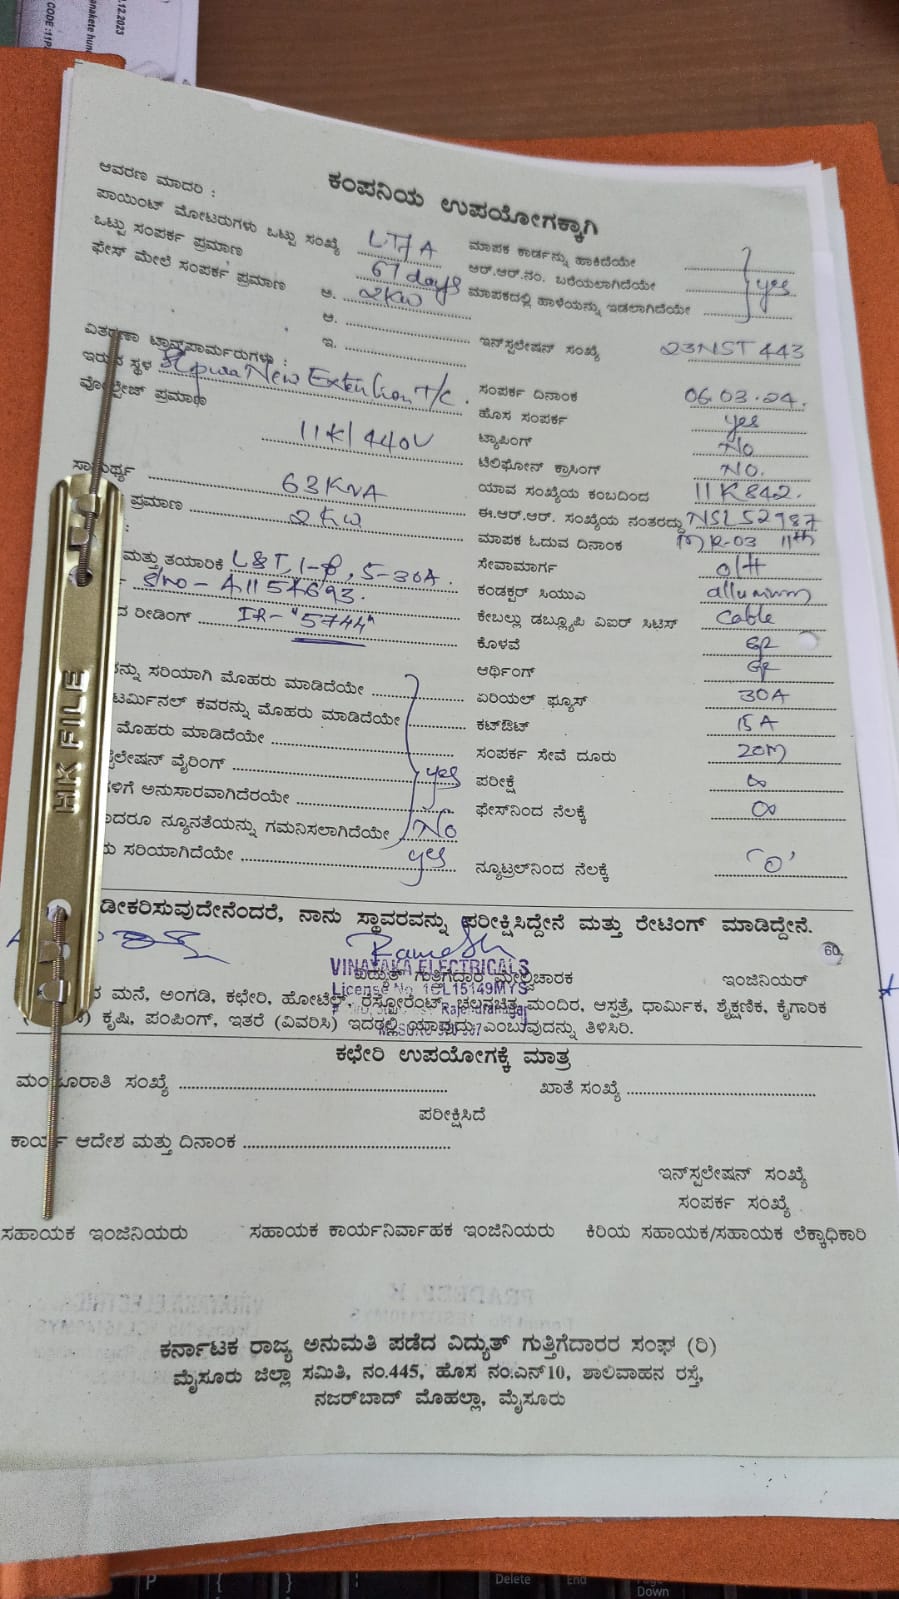 .12.2023
CODE :11P
ಕಂಪನಿಯ ಉಪಯೋಗಕ್ಕಾಗಿ
ಆವರಣ ಮಾದರಿ :
ಪಾಯಿಂಟ್ ಮೋಟರುಗಳು ಒಟ್ಟು ಸಂಖ್ಯೆ LT/A
ಒಟ್ಟು ಸಂಪರ್ಕ ಪ್ರಮಾಣ 67 days
ಫೇಸ್ ಮೇಲೆ ಸಂಪರ್ಕ ಪ್ರಮಾಣ ಅ. 2KW
ಆ.
ಇ.
ವಿತರಣಾ ಟ್ರಾನ್ಸ್‌ಫಾರ್ಮರುಗಳು :
ಇರುವ ಸ್ಥಳ New Extention T/C.
ವೋಲ್ಟೇಜ್ ಪ್ರಮಾಣ
11K/440V
ಸಾಮರ್ಥ್ಯ 63KVA
ಪ್ರಮಾಣ 2KW
:
ಮತ್ತು ತಯಾರಿಕೆ L&T, 1-ϕ, 5-30A.
S/no - A1154693.
ರೀಡಿಂಗ್ IR- "5744"
ನ್ನು ಸರಿಯಾಗಿ ಮೊಹರು ಮಾಡಿದೆಯೇ
ಟರ್ಮಿನಲ್ ಕವರನ್ನು ಮೊಹರು ಮಾಡಿದೆಯೇ
ಮೊಹರು ಮಾಡಿದೆಯೇ
ಲೇಷನ್ ವೈರಿಂಗ್ yes
ಳಿಗೆ ಅನುಸಾರವಾಗಿದೆರಯೇ
ದರೂ ನ್ಯೂನತೆಯನ್ನು ಗಮನಿಸಲಾಗಿದೆಯೇ No
ಸರಿಯಾಗಿದೆಯೇ yes
ಮಾಪಕ ಕಾರ್ಡನ್ನು ಹಾಕಿದೆಯೇ
ಆರ್.ಆರ್.ನಂ. ಬರೆಯಲಾಗಿದೆಯೇ yes
ಮಾಪಕದಲ್ಲಿ ಹಾಳೆಯನ್ನು ಇಡಲಾಗಿದೆಯೇ
ಇನ್‌ಸ್ಟಲೇಷನ್ ಸಂಖ್ಯೆ 23NST 443
ಸಂಪರ್ಕ ದಿನಾಂಕ 06.03.24.
ಹೊಸ ಸಂಪರ್ಕ yes
ಟ್ಯಾಪಿಂಗ್ No
ಟೆಲಿಫೋನ್ ಕ್ರಾಸಿಂಗ್ NO.
ಯಾವ ಸಂಖ್ಯೆಯ ಕಂಬದಿಂದ 11K842.
ಈ.ಆರ್.ಆರ್. ಸಂಖ್ಯೆಯ ನಂತರದ್ದು NSL52987
ಮಾಪಕ ಓದುವ ದಿನಾಂಕ MR-03 11th
ಸೇವಾಮಾರ್ಗ O/H
ಕಂಡಕ್ಟರ್ ಸಿಯುಎ alluminum
ಕೇಬಲ್ಲು ಡಬ್ಲ್ಯೂಪಿ ವಿಐಆರ್ ಸಿಟಿಸ್ cable
ಕೊಳವೆ GP
ಆರ್ಥಿಂಗ್ GP
ಏರಿಯಲ್ ಫ್ಯೂಸ್ 30A
ಕಟ್‌ಔಟ್ 15A
ಸಂಪರ್ಕ ಸೇವೆ ದೂರು 20M
ಪರೀಕ್ಷೆ ∞
ಫೇಸ್‌ನಿಂದ ನೆಲಕ್ಕೆ ∞
ನ್ಯೂಟ್ರಲ್‌ನಿಂದ ನೆಲಕ್ಕೆ 'O'
ಡೀಕರಿಸುವುದೇನೆಂದರೆ, ನಾನು ಸ್ಥಾವರವನ್ನು ಪರೀಕ್ಷಿಸಿದ್ದೇನೆ ಮತ್ತು ರೇಟಿಂಗ್ ಮಾಡಿದ್ದೇನೆ.
Ramesh
60
VINAYAKA ELECTRICALS
ವಿದ್ಯುತ್ ಗುತ್ತಿಗೆದಾರ ಮೇಲ್ವಿಚಾರಕ ಇಂಜಿನಿಯರ್
License No. 1CL15149MYS
ಮನೆ, ಅಂಗಡಿ, ಕಛೇರಿ, ಹೋಟೆಲ್, ರೆಸ್ಟೋರೆಂಟ್, ಚಲನಚಿತ್ರ ಮಂದಿರ, ಆಸ್ಪತ್ರೆ, ಧಾರ್ಮಿಕ, ಶೈಕ್ಷಣಿಕ, ಕೈಗಾರಿಕ
Rajendranagar
ಕೃಷಿ, ಪಂಪಿಂಗ್, ಇತರೆ (ವಿವರಿಸಿ) ಇದರಲ್ಲಿ ಯಾವುದು ಎಂಬುವುದನ್ನು ತಿಳಿಸಿರಿ.
ಕಛೇರಿ ಉಪಯೋಗಕ್ಕೆ ಮಾತ್ರ
ಮಂಜೂರಾತಿ ಸಂಖ್ಯೆ ಖಾತೆ ಸಂಖ್ಯೆ
ಪರೀಕ್ಷಿಸಿದೆ
ಕಾರ್ಯ ಆದೇಶ ಮತ್ತು ದಿನಾಂಕ
ಇನ್‌ಸ್ಟಲೇಷನ್ ಸಂಖ್ಯೆ
ಸಂಪರ್ಕ ಸಂಖ್ಯೆ
ಸಹಾಯಕ ಇಂಜಿನಿಯರು ಸಹಾಯಕ ಕಾರ್ಯನಿರ್ವಾಹಕ ಇಂಜಿನಿಯರು ಕಿರಿಯ ಸಹಾಯಕ/ಸಹಾಯಕ ಲೆಕ್ಕಾಧಿಕಾರಿ
ಕರ್ನಾಟಕ ರಾಜ್ಯ ಅನುಮತಿ ಪಡೆದ ವಿದ್ಯುತ್ ಗುತ್ತಿಗೆದಾರರ ಸಂಘ (ರಿ)
ಮೈಸೂರು ಜಿಲ್ಲಾ ಸಮಿತಿ, ನಂ.445, ಹೊಸ ನಂ.ಎನ್10, ಶಾಲಿವಾಹನ ರಸ್ತೆ,
ನಜರ್‌ಬಾದ್ ಮೊಹಲ್ಲಾ, ಮೈಸೂರು
HK FILE
P { } Delete End Page Down